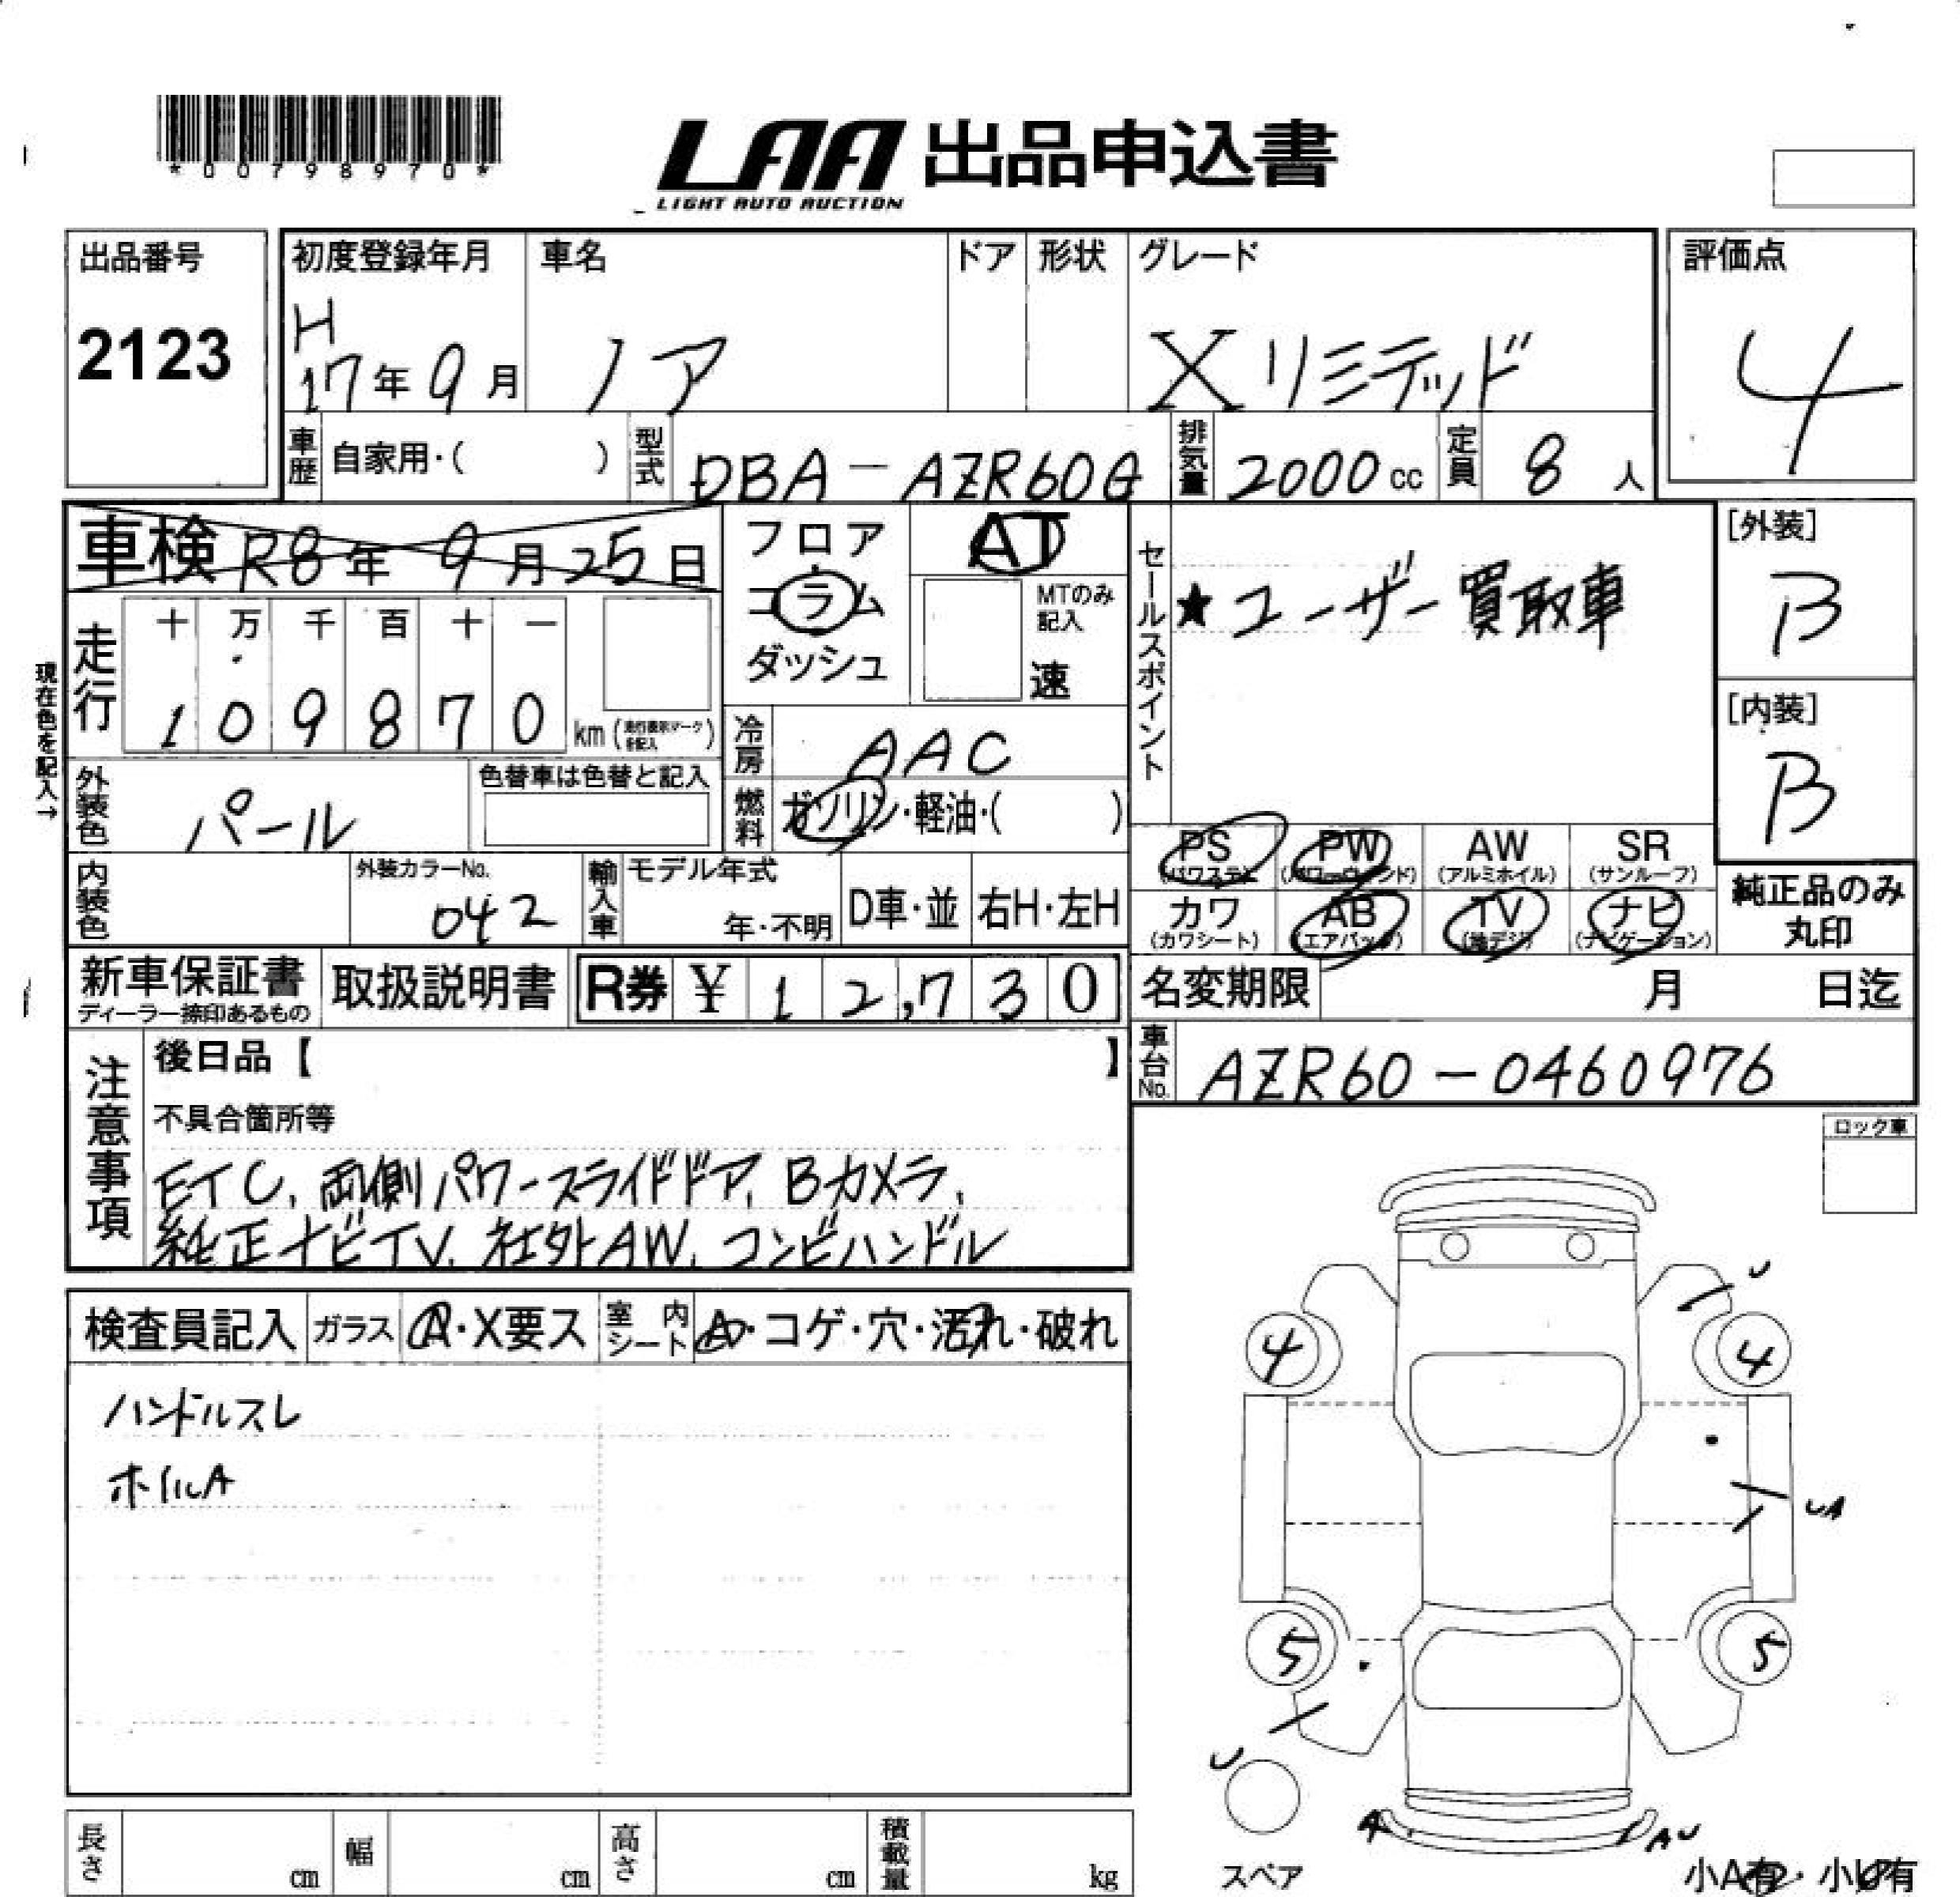 *00798970*
LAA 出品申込書
LIGHT AUTO AUCTION
出品番号 初度登録年月 車名 ドア 形状 グレード 評価点
2123 H 17年9月 ノア Xリミテッド 4
車歴 自家用・( ) 型式 DBA-AZR60G 排気量 2000cc 定員 8人
車検 R8年9月25日 フロア AT セールスポイント [外装]
コラム MTのみ記入 ★ユーザー買取車 B
ダッシュ 速
現在色を記入→
走行 十 万 千 百 十 一 [内装]
1 0 9 8 7 0 km B
冷房 AAC
外装色 パール 色替車は色替と記入 燃料 ガソリン・軽油・( )
PS PW AW SR
(パワステ) (パワーウィンド) (アルミホイル) (サンルーフ)
カワ AB TV ナビ
(カワシート) (エアバッグ) (地デジ) (ナビゲーション)
純正品のみ
丸印
内装色 外装カラーNo. 042 輸入車 モデル年式 年・不明 D車・並 右H・左H
新車保証書 取扱説明書 R券 ¥ 12,730 名変期限 月 日迄
ディーラー捺印あるもの
車台No. AZR60-0460976
注意事項 後日品【 】
不具合箇所等
ETC、両側パワースライドドア、Bカメラ、
純正ナビTV、社外AW、コンビハンドル
ロック車
検査員記入 ガラス A・X要ス 室内シート A・コゲ・穴・汚れ・破れ
ハンドルスレ
ホイルA
U
4 4
UA
5 5
U
A AU
スペア 小A有・小U有
長さ cm 幅 cm 高さ cm 積載量 kg